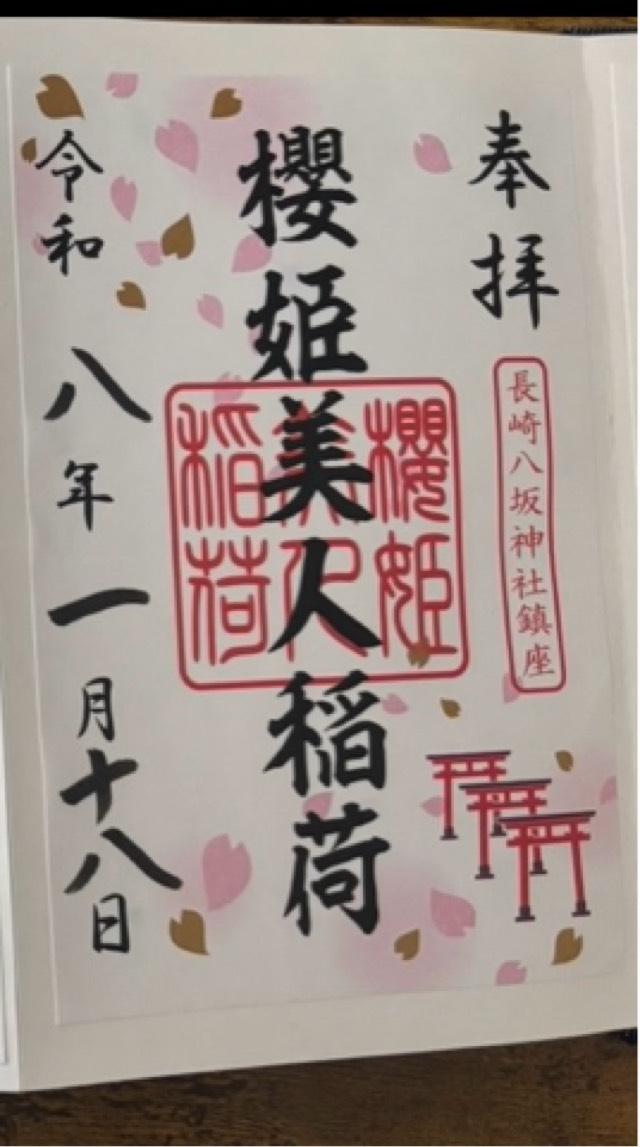 奉拝
長崎八坂神社鎮座
櫻姫美人稲荷
櫻姫
美人
稲荷
令和八年一月十八日